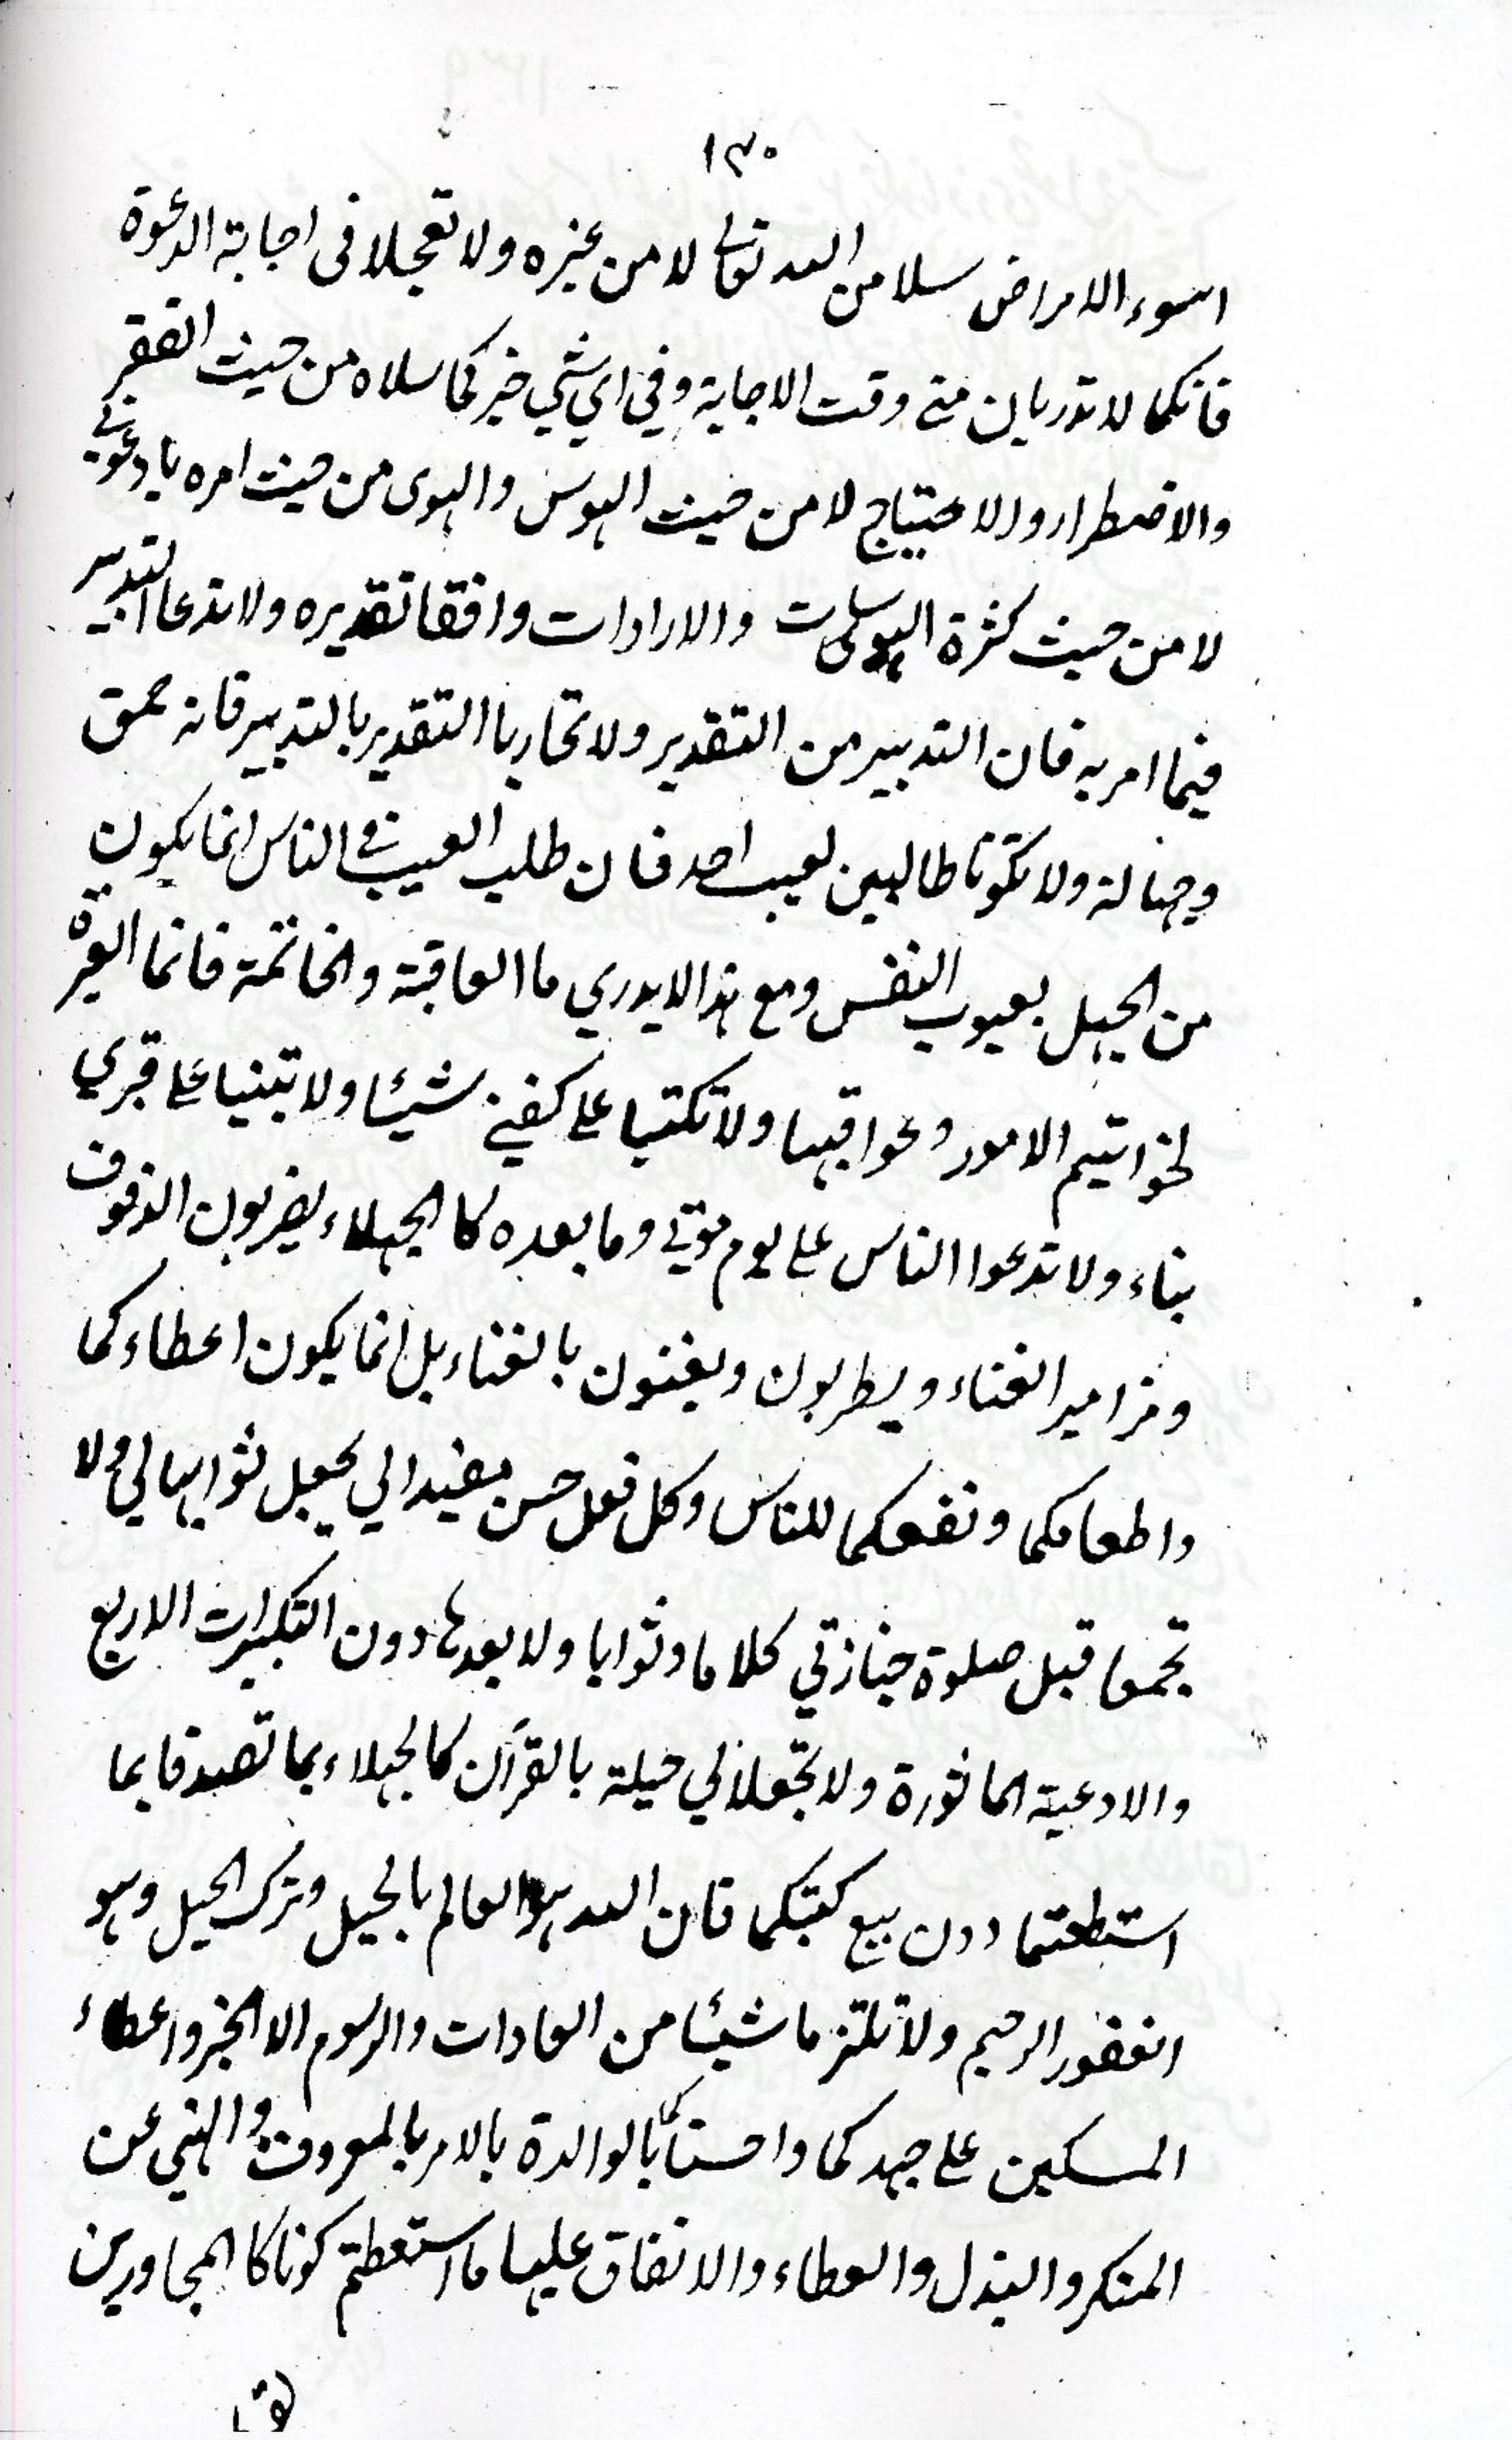 ١٣٠
اسوء الامراض سلا من الله تعالى لا من غيره ولا تعجلا فى اجابة الدعوة
فانكما لا تدريان متى وقت الاجابة وفي اي شي خيركما سلاه من حيث الفقر
والاضطرار والاحتياج لا من حيث الهوس والهوى من حيث امره بادعوني
لا من حيث كثرة الهوسات والارادات وافقا تقديره ولا تدعا التدبير
فيما امر به فان التدبير من التقدير ولا تحاربا التقدير بالتدبير فانه حمق
وجهالة ولا تكونا طالبين لعيب احد فان طلب العيب في الناس انما يكون
من الجهل بعيوب النفس ومع هذا لا يدري ما العاقبة والخاتمة فانما العبرة
لخواتيم الامور وعواقبها ولا تكتبا على كفني شيئا ولا تبنيا على قبري
بناء ولا تدعوا الناس على يوم موتي وما بعده كالجهلاء يضربون الدفوف
ومزامير الغناء ويطربون ويغنون بالغناء بل انما يكون اعطاءكما
واطعامكما ونفعكما للناس وكل فعل حسن مفيدا لي يجعل ثوابها لي ولا
تجمعا قبل صلوة جنازتي كلاما وثوابا ولا بعدها دون التكبيرات الاربع
والادعية الماثورة ولا تجعلا لي حيلة بالقرآن كالجهلاء بما تصدقا بما
استطعتما دون بيع كتبكما فان الله هو العالم بالحيل وترك الحيل وهو
الغفور الرحيم ولا تلتزما شيئا من العادات والرسوم الا الخبز واعطاء
المسكين على جهدكما واحسنا بالوالدة بالامر بالمعروف والنهي عن
المنكر والبذل والعطاء والانفاق عليها ما استعطتم كونا كالمجاورين